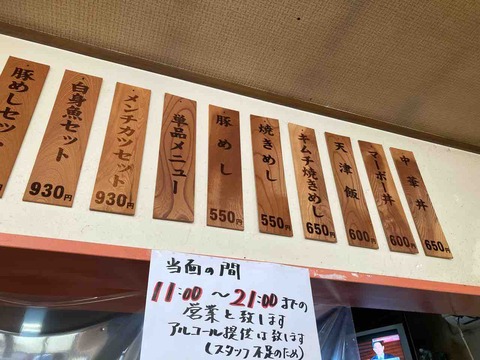 豚めしセット
白身魚セット
930円
メンチカツセット
930円
単品メニュー
豚めし
550円
焼きめし
550円
キムチ焼きめし
650円
天津飯
600円
マーボー丼
600円
中華丼
650円
当面の間
11:00 ～ 21:00までの
営業と致します
アルコール提供は致します
(スタッフ不足のため)